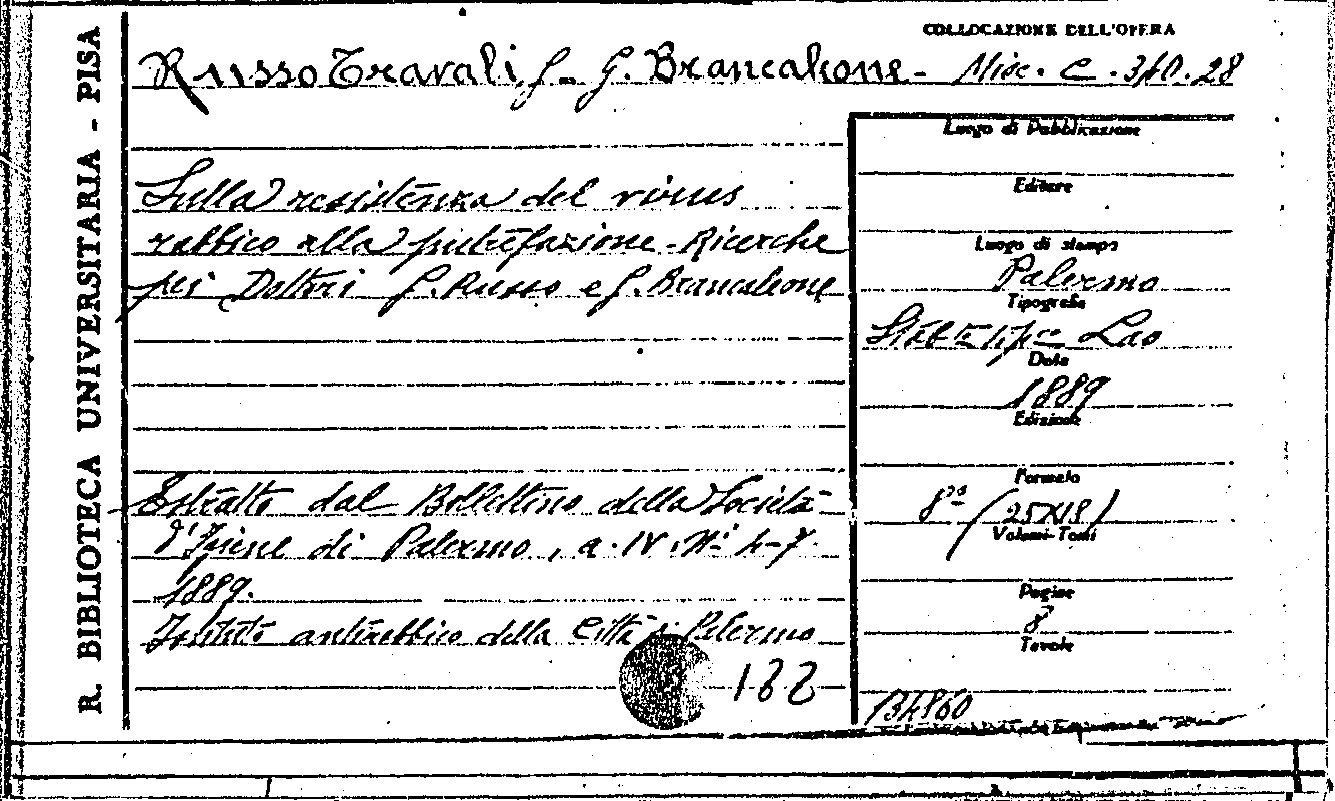 COLLOCAZIONE DELL'OPERA
Russo Travali, G. - G. Brancaleone - Misc. C. 340.28
R. BIBLIOTECA UNIVERSITARIA - PISA
Sulla resistenza del virus
rabbico alla putrefazione - Ricerche
pei Dottori G. Russo e G. Brancaleone
Estratto dal Bollettino della Società
d'Igiene di Palermo, a. IV. Ni 4-7
1889.
Istituto antirabbico della Città di Palermo
182
Luogo di Pubblicazione
Editore
Luogo di stampa
Palermo
Tipografia
Stab. tip. Lao
Data
1889
Edizione
Formato
8° (25X18)
Volumi-Tomi
Pagine
8
Tavole
134860